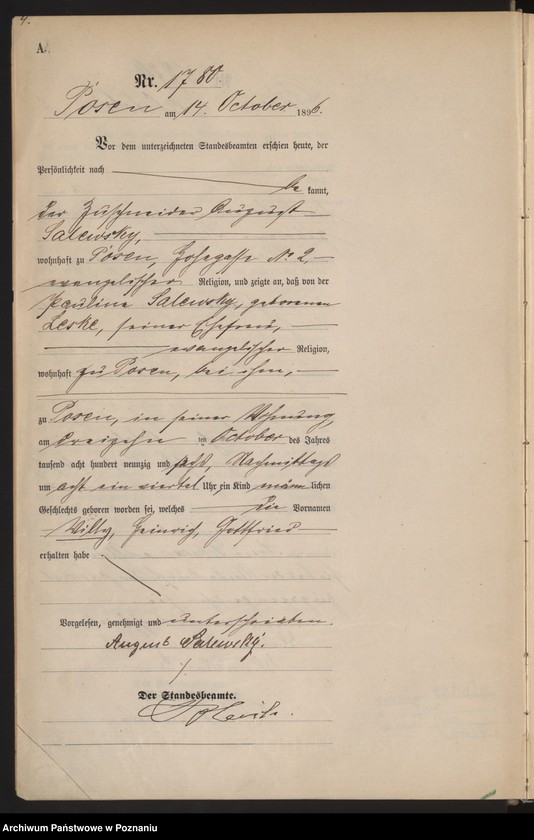 4.
A.
Nr. 1780.
Posen am 14. October 1896.
Vor dem unterzeichneten Standesbeamten erschien heute, der
Persönlichkeit nach
be kannt,
der Zuschneider August
Salewsky,
wohnhaft zu Posen, No 2,
evangelischer Religion, und zeigte an, daß von der
Pauline Salewsky, geborenen
Leske, seiner Ehefrau,
evangelischer Religion,
wohnhaft zu Posen, bei ihm,
zu Posen, in seiner Wohnung,
am dreizehn ten October des Jahres
tausend acht hundert neunzig und sechs, Nachmittags
um acht ein viertel Uhr, ein Kind männ lichen
Geschlechts geboren worden sei, welches die Vornamen
Willy, Heinrich, Gottfried
erhalten habe.
Vorgelesen, genehmigt und unterschrieben.
August Salewsky.
Der Standesbeamte.
Archiwum Państwowe w Poznaniu